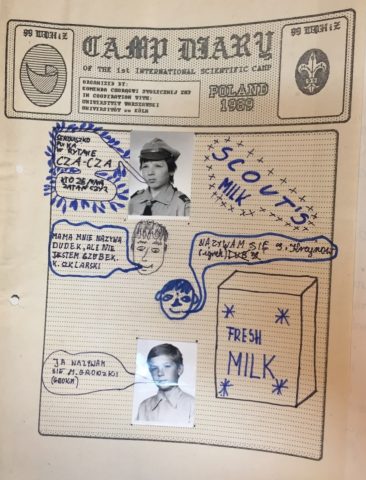 99 WDH i Z
CAMP DIARY
OF THE 1st INTERNATIONAL SCIENTIFIC CAMP
99 WDH i Z
ORGANIZED BY:
KOMENDA CHORĄGWI STOŁECZNEJ ZHP
IN COOPERATION WITH:
UNIWERSYTET WARSZAWSKI
UNIVERSITÄT zu KÖLN
POLAND
1989
W RYTMIE
CZA-CZA
KTO ZE MNĄ
ZATAŃCZY?
SCOUT'S
MILK
MAMA MNIE NAZYWA
DUDEK, ALE NIE
JESTEM GŁĄBEK.
K. SZKLARSKI
NAZYWAM SIĘ
FRESH
MILK
JA NAZYWAM
SIĘ M. GRODZKI